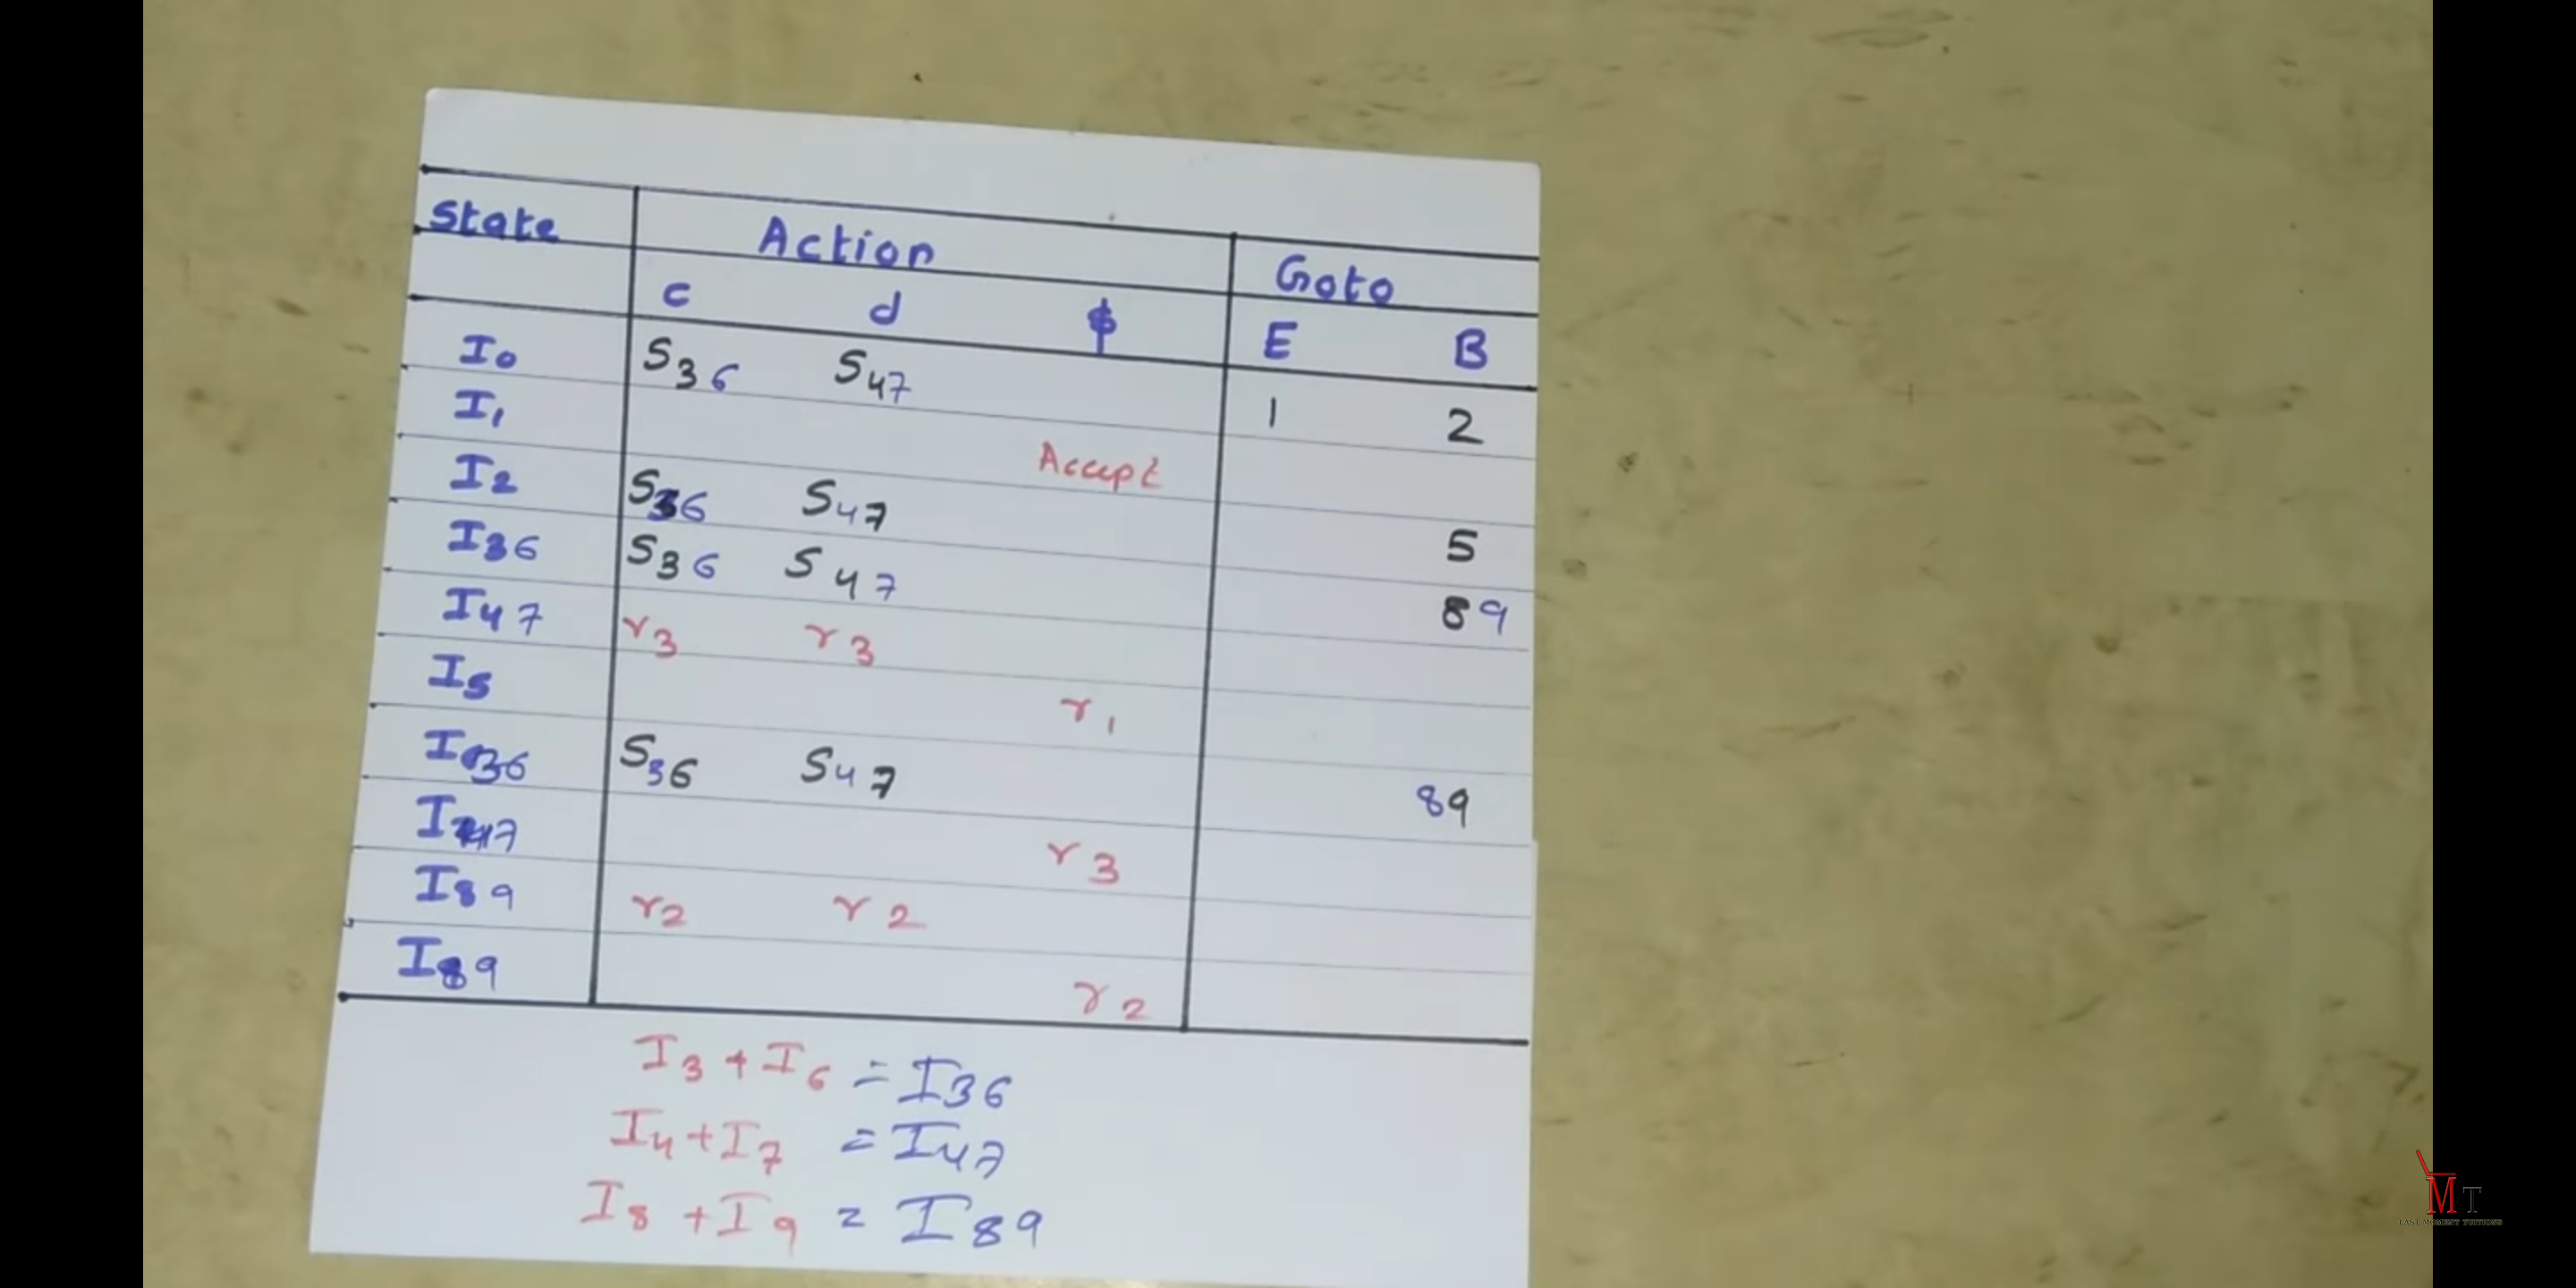 State Action Goto
c d $ E B
I0 S36 S47 1 2
I1 Accept
I2 S36 S47 5
I36 S36 S47 89
I47 r3 r3
I5 r1
I36 S36 S47 89
I47 r3
I89 r2 r2
I89 r2
I3 + I6 = I36
I4 + I7 = I47
I8 + I9 = I89
MT
LAST MOMENT TUITIONS